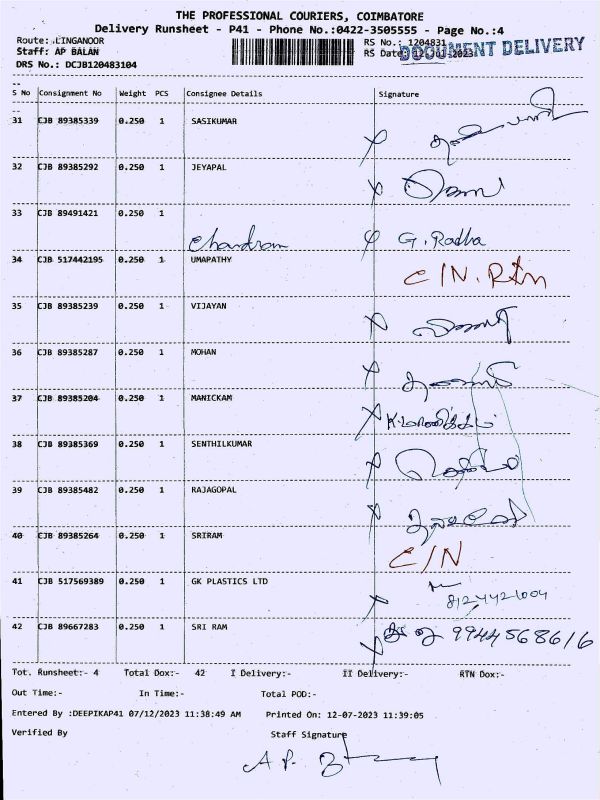 THE PROFESSIONAL COURIERS, COIMBATORE
Delivery Runsheet - P41 - Phone No.:0422-3505555 - Page No.:4
Route: LINGANOOR
RS No.: 1204831
Staff: AP BALAN
RS Date: 12 Jul 2023
DOCUMENT DELIVERY
DRS No.: DCJB120483104
S No Consignment No Weight PCS Consignee Details Signature
31 CJB 89385339 0.250 1 SASIKUMAR
32 CJB 89385292 0.250 1 JEYAPAL
33 CJB 89491421 0.250 1
Chandran G. Radha
34 CJB 517442195 0.250 1 UMAPATHY
C/N. Rtn
35 CJB 89385239 0.250 1 VIJAYAN
36 CJB 89385287 0.250 1 MOHAN
37 CJB 89385204 0.250 1 MANICKAM
K.மாணிக்கம்
38 CJB 89385369 0.250 1 SENTHILKUMAR
39 CJB 89385482 0.250 1 RAJAGOPAL
40 CJB 89385264 0.250 1 SRIRAM
C/N
41 CJB 517569389 0.250 1 GK PLASTICS LTD
8124421004
42 CJB 89667283 0.250 1 SRI RAM
9944568616
Tot. Runsheet:- 4 Total Dox:- 42 I Delivery:- II Delivery:- RTN Dox:-
Out Time:- In Time:- Total POD:-
Entered By :DEEPIKAP41 07/12/2023 11:38:49 AM Printed On: 12-07-2023 11:39:05
Verified By Staff Signature
A.P.